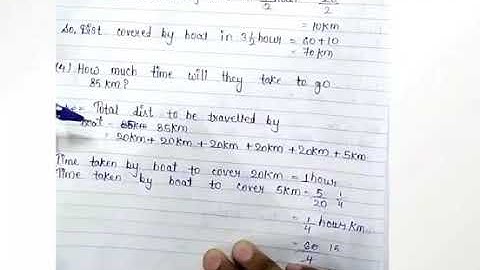 hour 20
2 2
= 10km
So, Dist covered by boat in 3½ hour = 60+10
= 70km
(4) How much time will they take to go
85 km?
Total dist to be travelled by
boat = 65km 85km
= 20km + 20km + 20km + 20km + 5km
Time taken by boat to cover 20km = 1 hour
Time taken by boat to cover 5km = 5 1
20 4
= 1 hour km
4
= 60 15
4